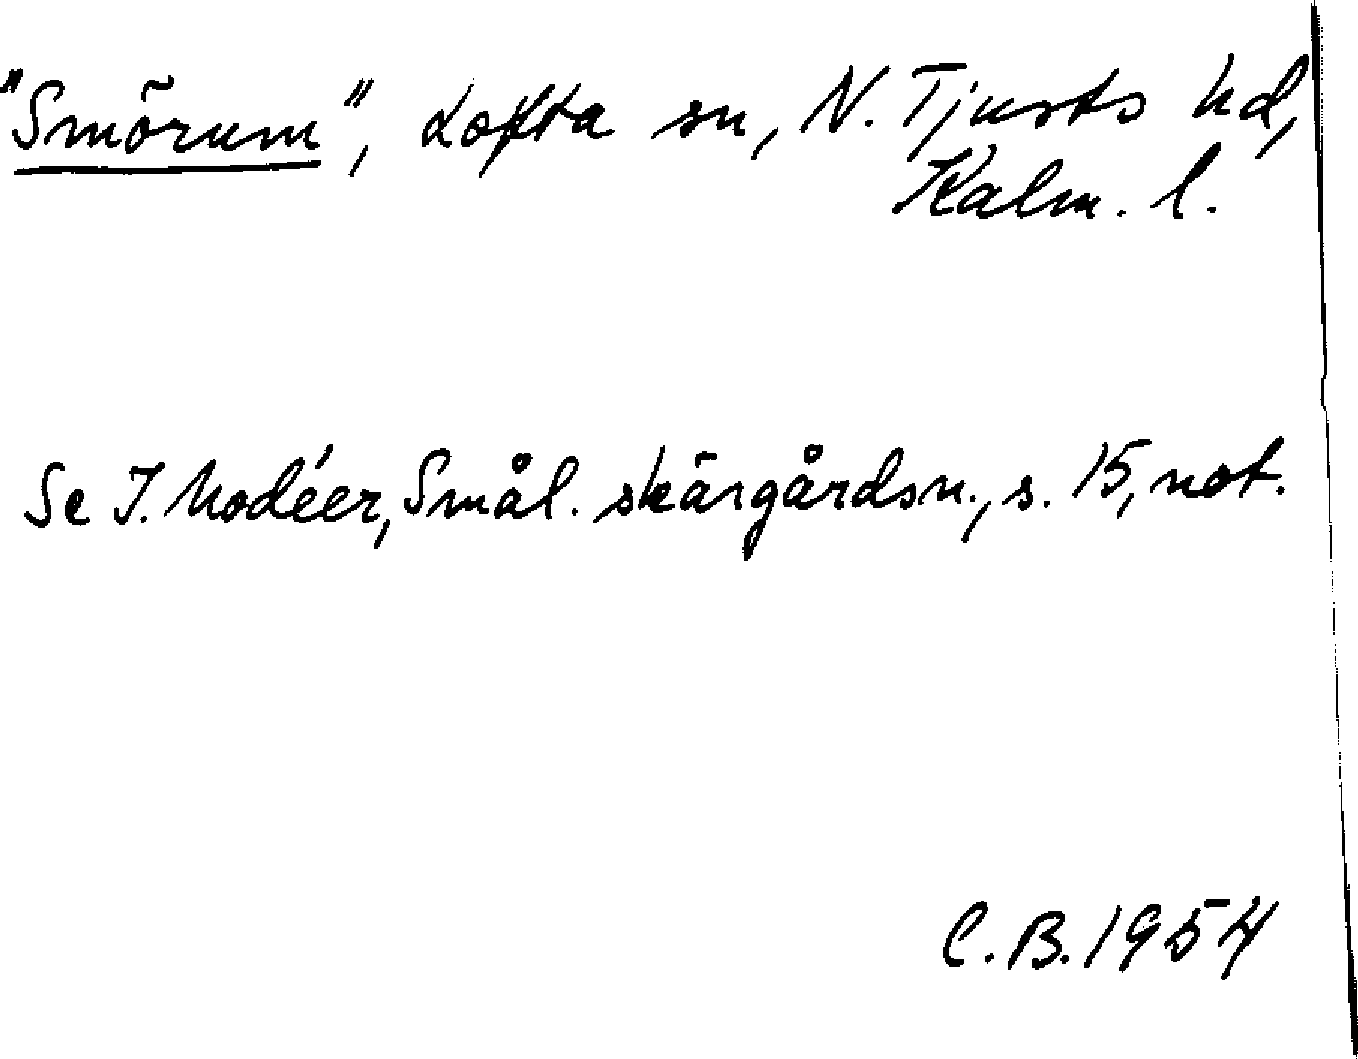 "Smörum", Lofta sn, N. Tjusts hd,
Kalm. l.
Se I. Modéer, Smål. skärgårdsn., s. 15, not.
C.B. 1954